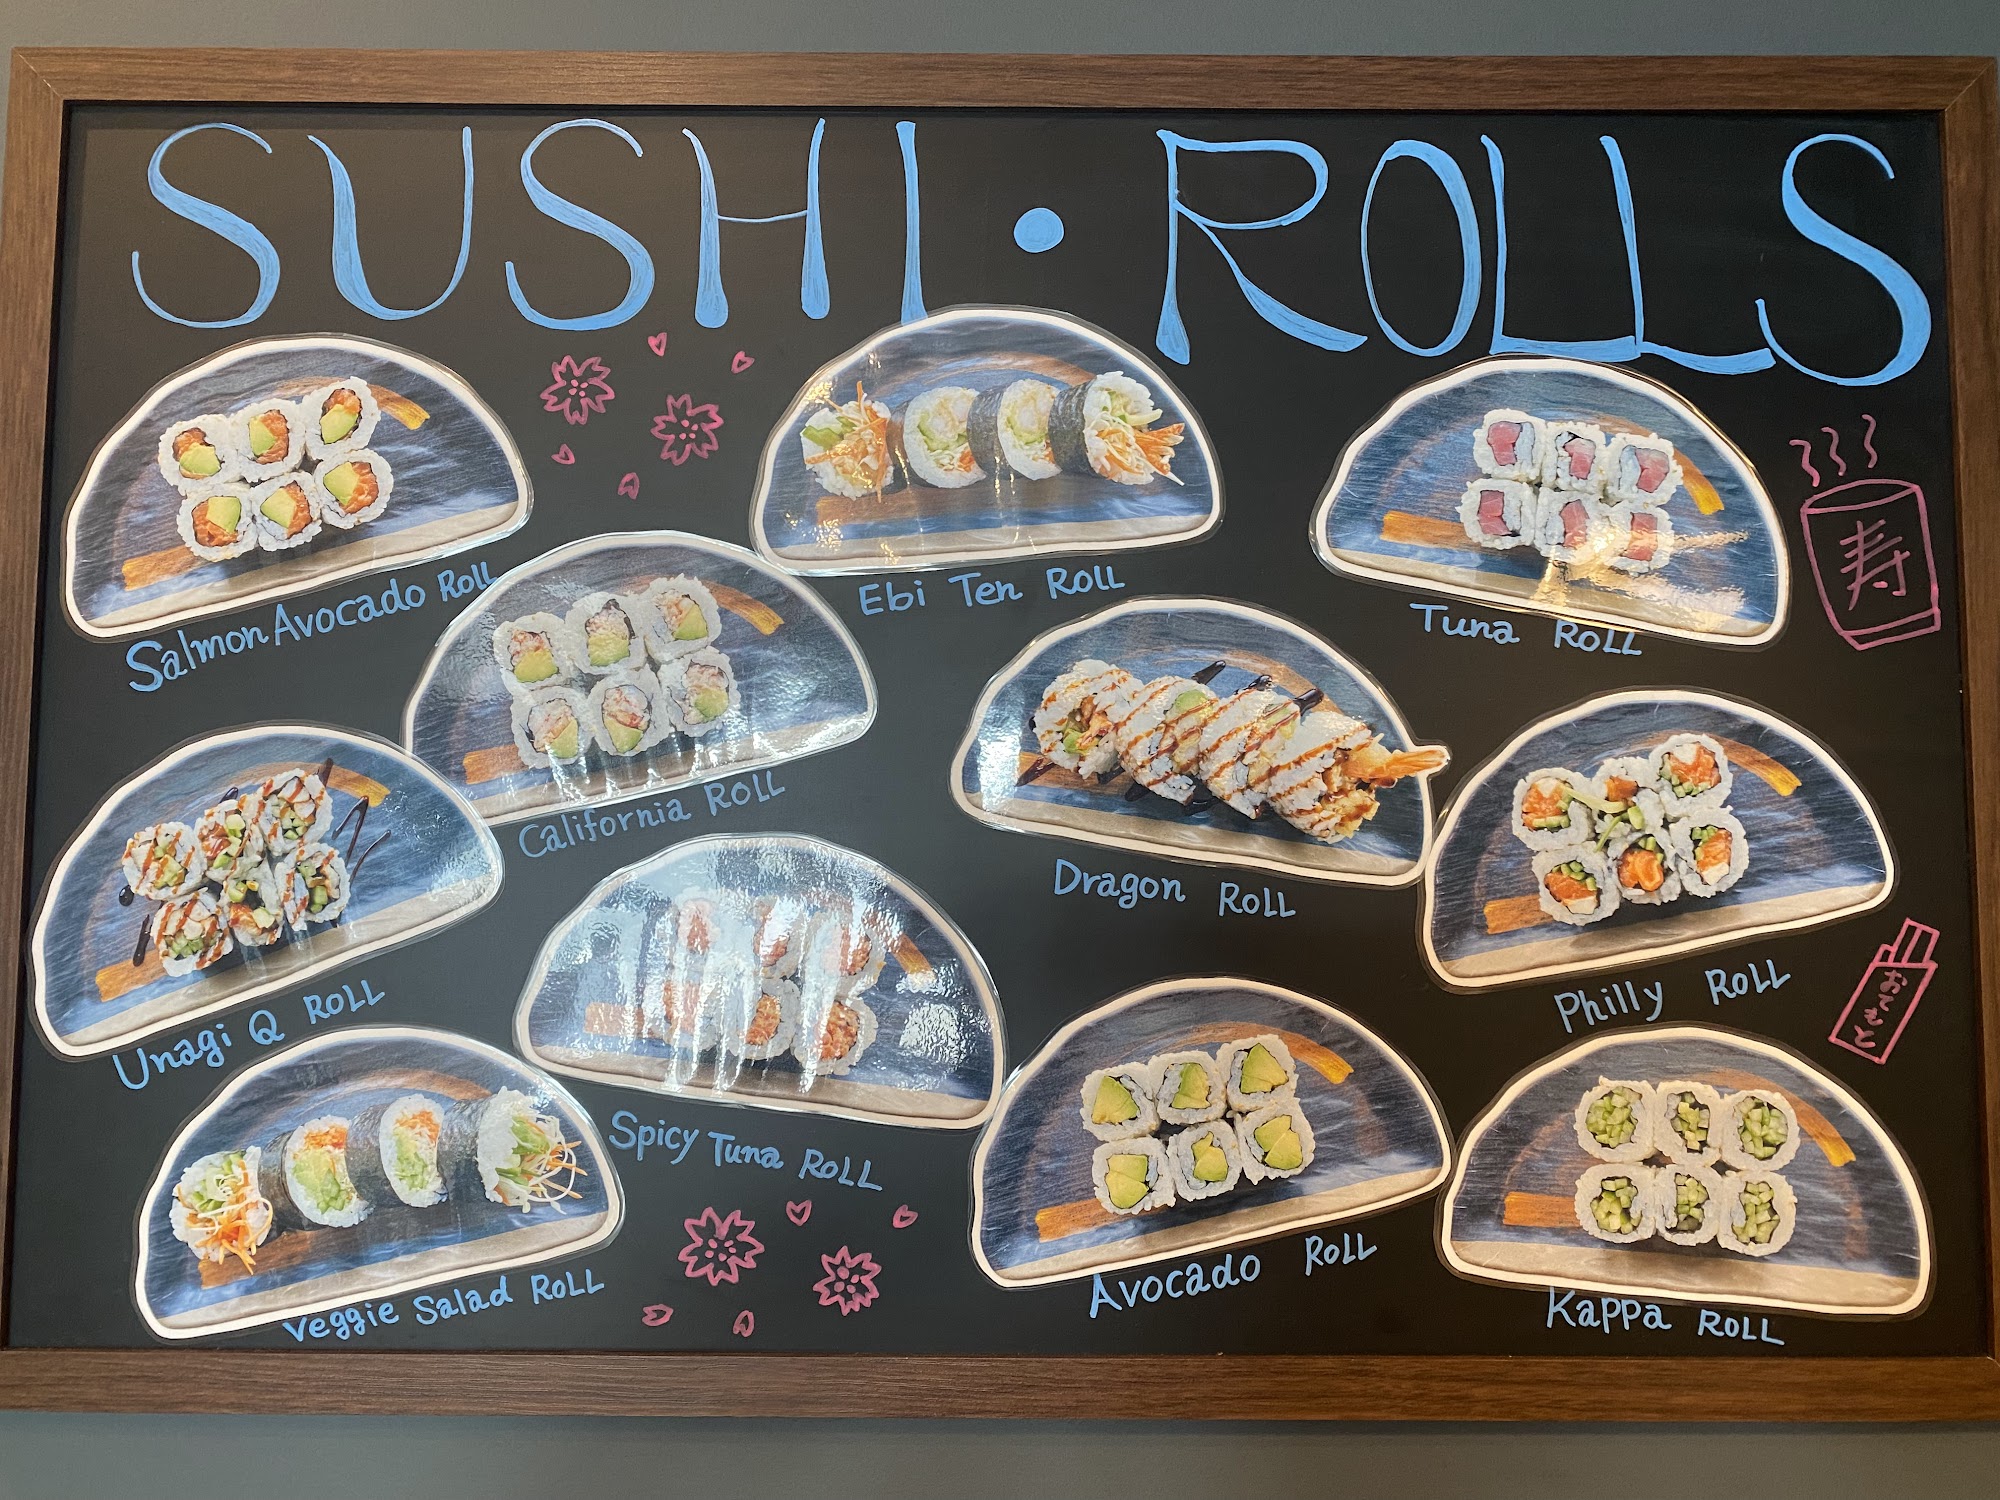 SUSHI • ROLLS
Salmon Avocado Roll
Ebi Ten Roll
Tuna Roll
寿
California Roll
Dragon Roll
Philly Roll
おてもと
Unagi Q Roll
Spicy Tuna Roll
Avocado Roll
Kappa Roll
Veggie Salad Roll